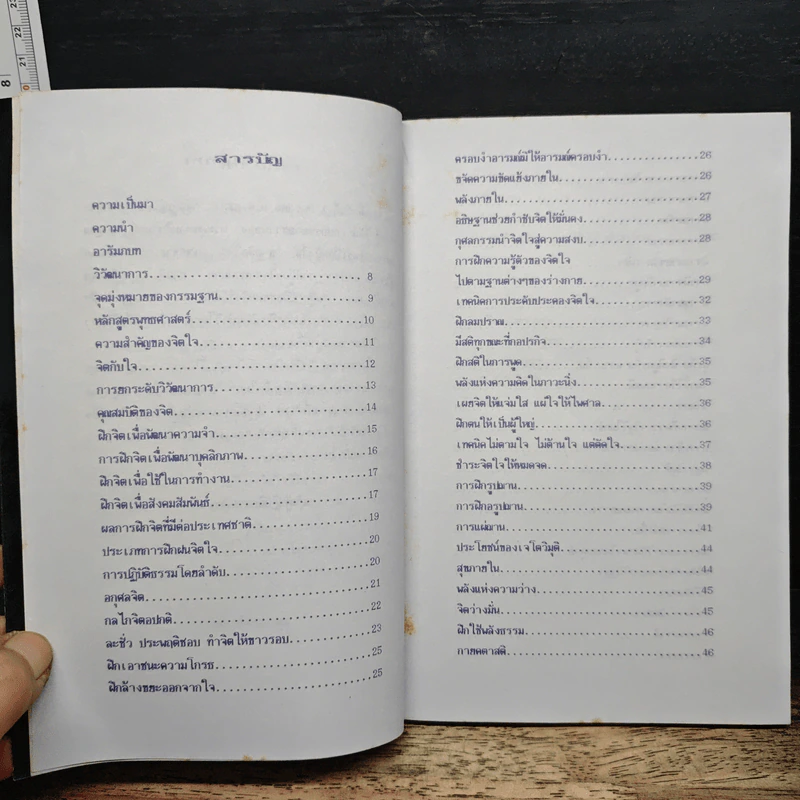 สารบัญ
ความเป็นมา
ความนำ
อารัมภบท
วิวัฒนาการ 8
จุดมุ่งหมายของกรรมฐาน 9
หลักสูตรพุทธศาสตร์ 10
ความสำคัญของจิตใจ 11
จิตกับใจ 12
การยกระดับวิวัฒนาการ 13
คุณสมบัติของจิต 14
ฝึกจิตเพื่อพัฒนาความจำ 15
การฝึกจิตเพื่อพัฒนาบุคลิกภาพ 16
ฝึกจิตเพื่อใช้ในการทำงาน 17
ฝึกจิตเพื่อสังคมสัมพันธ์ 17
ผลการฝึกจิตที่มีต่อประเทศชาติ 19
ประเภทการฝึกฝนจิตใจ 20
การปฏิบัติธรรมโดยลำดับ 20
อกุศลจิต 21
กลไกจิตอปกติ 22
ละชั่ว ประพฤติชอบ ทำจิตให้ขาวรอบ 23
ฝึกเอาชนะความโกรธ 25
ฝึกล้างขยะออกจากใจ 25
ครอบงำอารมณ์มิให้อารมณ์ครอบงำ 26
ขจัดความขัดแย้งภายใน 26
พลังภายใน 27
อธิษฐานช่วยกำชับจิตให้มั่นคง 28
กุศลกรรมนำจิตใจสู่ความสงบ 28
การฝึกความรู้ตัวของจิตใจ
ไปตามฐานต่างๆของร่างกาย 29
เทคนิคการประดับประคองจิตใจ 32
ฝึกลมปราณ 33
มีสติทุกขณะที่กอปรกิจ 34
ฝึกสติในการพูด 35
พลังแห่งความคิดในภาวะนิ่ง 35
เผยจิตให้แจ่มใส แผ่ใจให้ไพศาล 36
ฝึกตนให้เป็นผู้ใหญ่ 36
เทคนิคไม่ตามใจ ไม่ต้านใจ แต่ดัดใจ 37
ชำระจิตใจให้หมดจด 38
การฝึกรูปฌาน 39
การฝึกอรูปฌาน 39
การแผ่ฌาน 41
ประโยชน์ของเจโตวิมุติ 44
สุขภายใน 44
พลังแห่งความว่าง 45
จิตว่างมั่น 45
ฝึกใช้พลังธรรม 46
กายคตาสติ 46